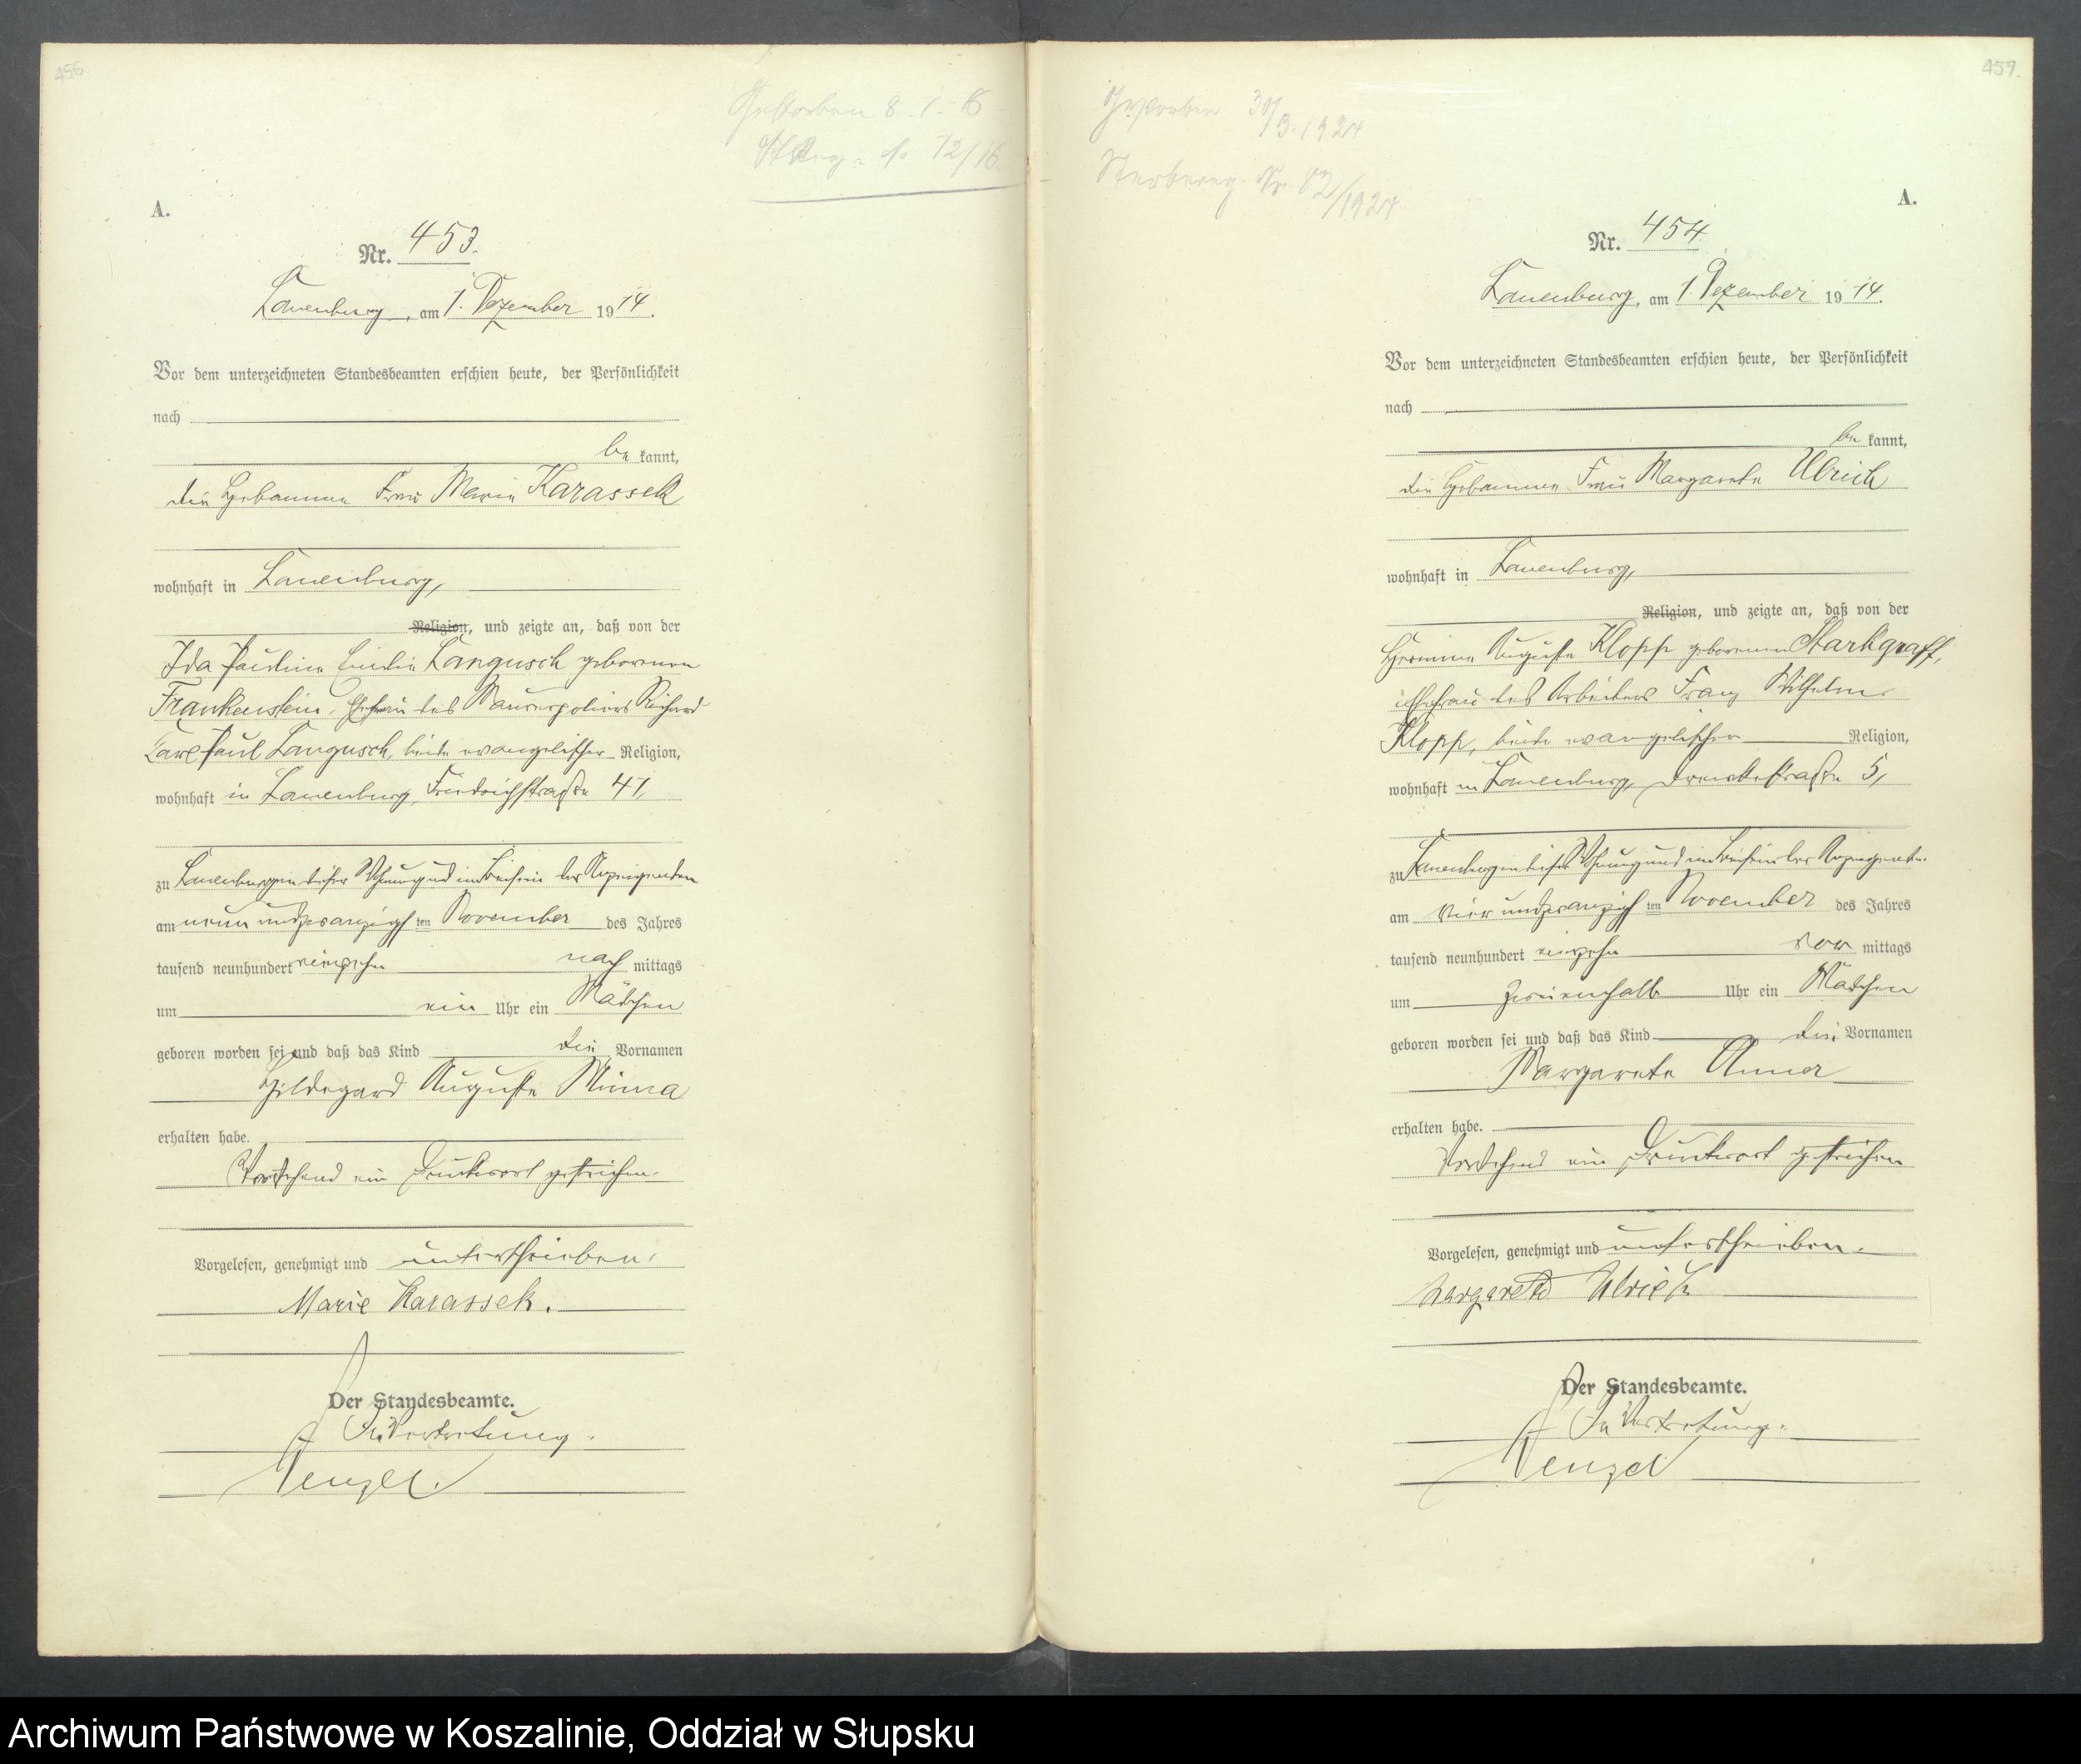 456
Gestorben 8.1.16
St. Reg. No 12/16.
A.
Nr. 453.
Lauenburg, am 1. Dezember 1914.
Vor dem unterzeichneten Standesbeamten erschien heute, der Persönlichkeit
nach
be kannt,
die Hebamme Frau Marie Karassek
wohnhaft in Lauenburg,
Religion, und zeigte an, daß von der
Ida Pauline Emilie Langusch geborenen
Frankenstein, Ehefrau des Maurerpoliers Richard
Carl Paul Langusch, beide evangelischer Religion,
wohnhaft in Lauenburg, Friedrichstraße 41,
zu Lauenburg in dieser Wohnung und im Beisein der Anzeigenden
am neun und zwanzigsten November des Jahres
tausend neunhundert vierzehn nach mittags
um ein Uhr ein Mädchen
geboren worden sei und daß das Kind die Vornamen
Hildegard Auguste Minna
erhalten habe.
Vorstehend ein Druckwort gestrichen.
Vorgelesen, genehmigt und unterschrieben.
Marie Karassek.
Der Standesbeamte.
In Vertretung.
Wenzel.
457.
Gestorben 30/3.1924
Sterbereg. Nr. 82/1924
A.
Nr. 454.
Lauenburg, am 1 Dezember 1914.
Vor dem unterzeichneten Standesbeamten erschien heute, der Persönlichkeit
nach
be kannt,
die Hebamme Frau Margarete Ulrich
wohnhaft in Lauenburg,
Religion, und zeigte an, daß von der
Hermine Auguste Klopp geborenen Markgraff,
Ehefrau des Arbeiters Franz Wilhelm
Klopp, beide evangelischer Religion,
wohnhaft in Lauenburg, 5,
zu Lauenburg in dieser Wohnung und im Beisein der Anzeigenden
am vier und zwanzigsten November des Jahres
tausend neunhundert vierzehn vor mittags
um zweieinhalb Uhr ein Mädchen
geboren worden sei und daß das Kind die Vornamen
Margarete Anna
erhalten habe.
Vorstehend ein Druckwort gestrichen
Vorgelesen, genehmigt und unterschrieben.
Margarete Ulrich
Der Standesbeamte.
In Vertretung.
Wenzel
Archiwum Państwowe w Koszalinie, Oddział w Słupsku